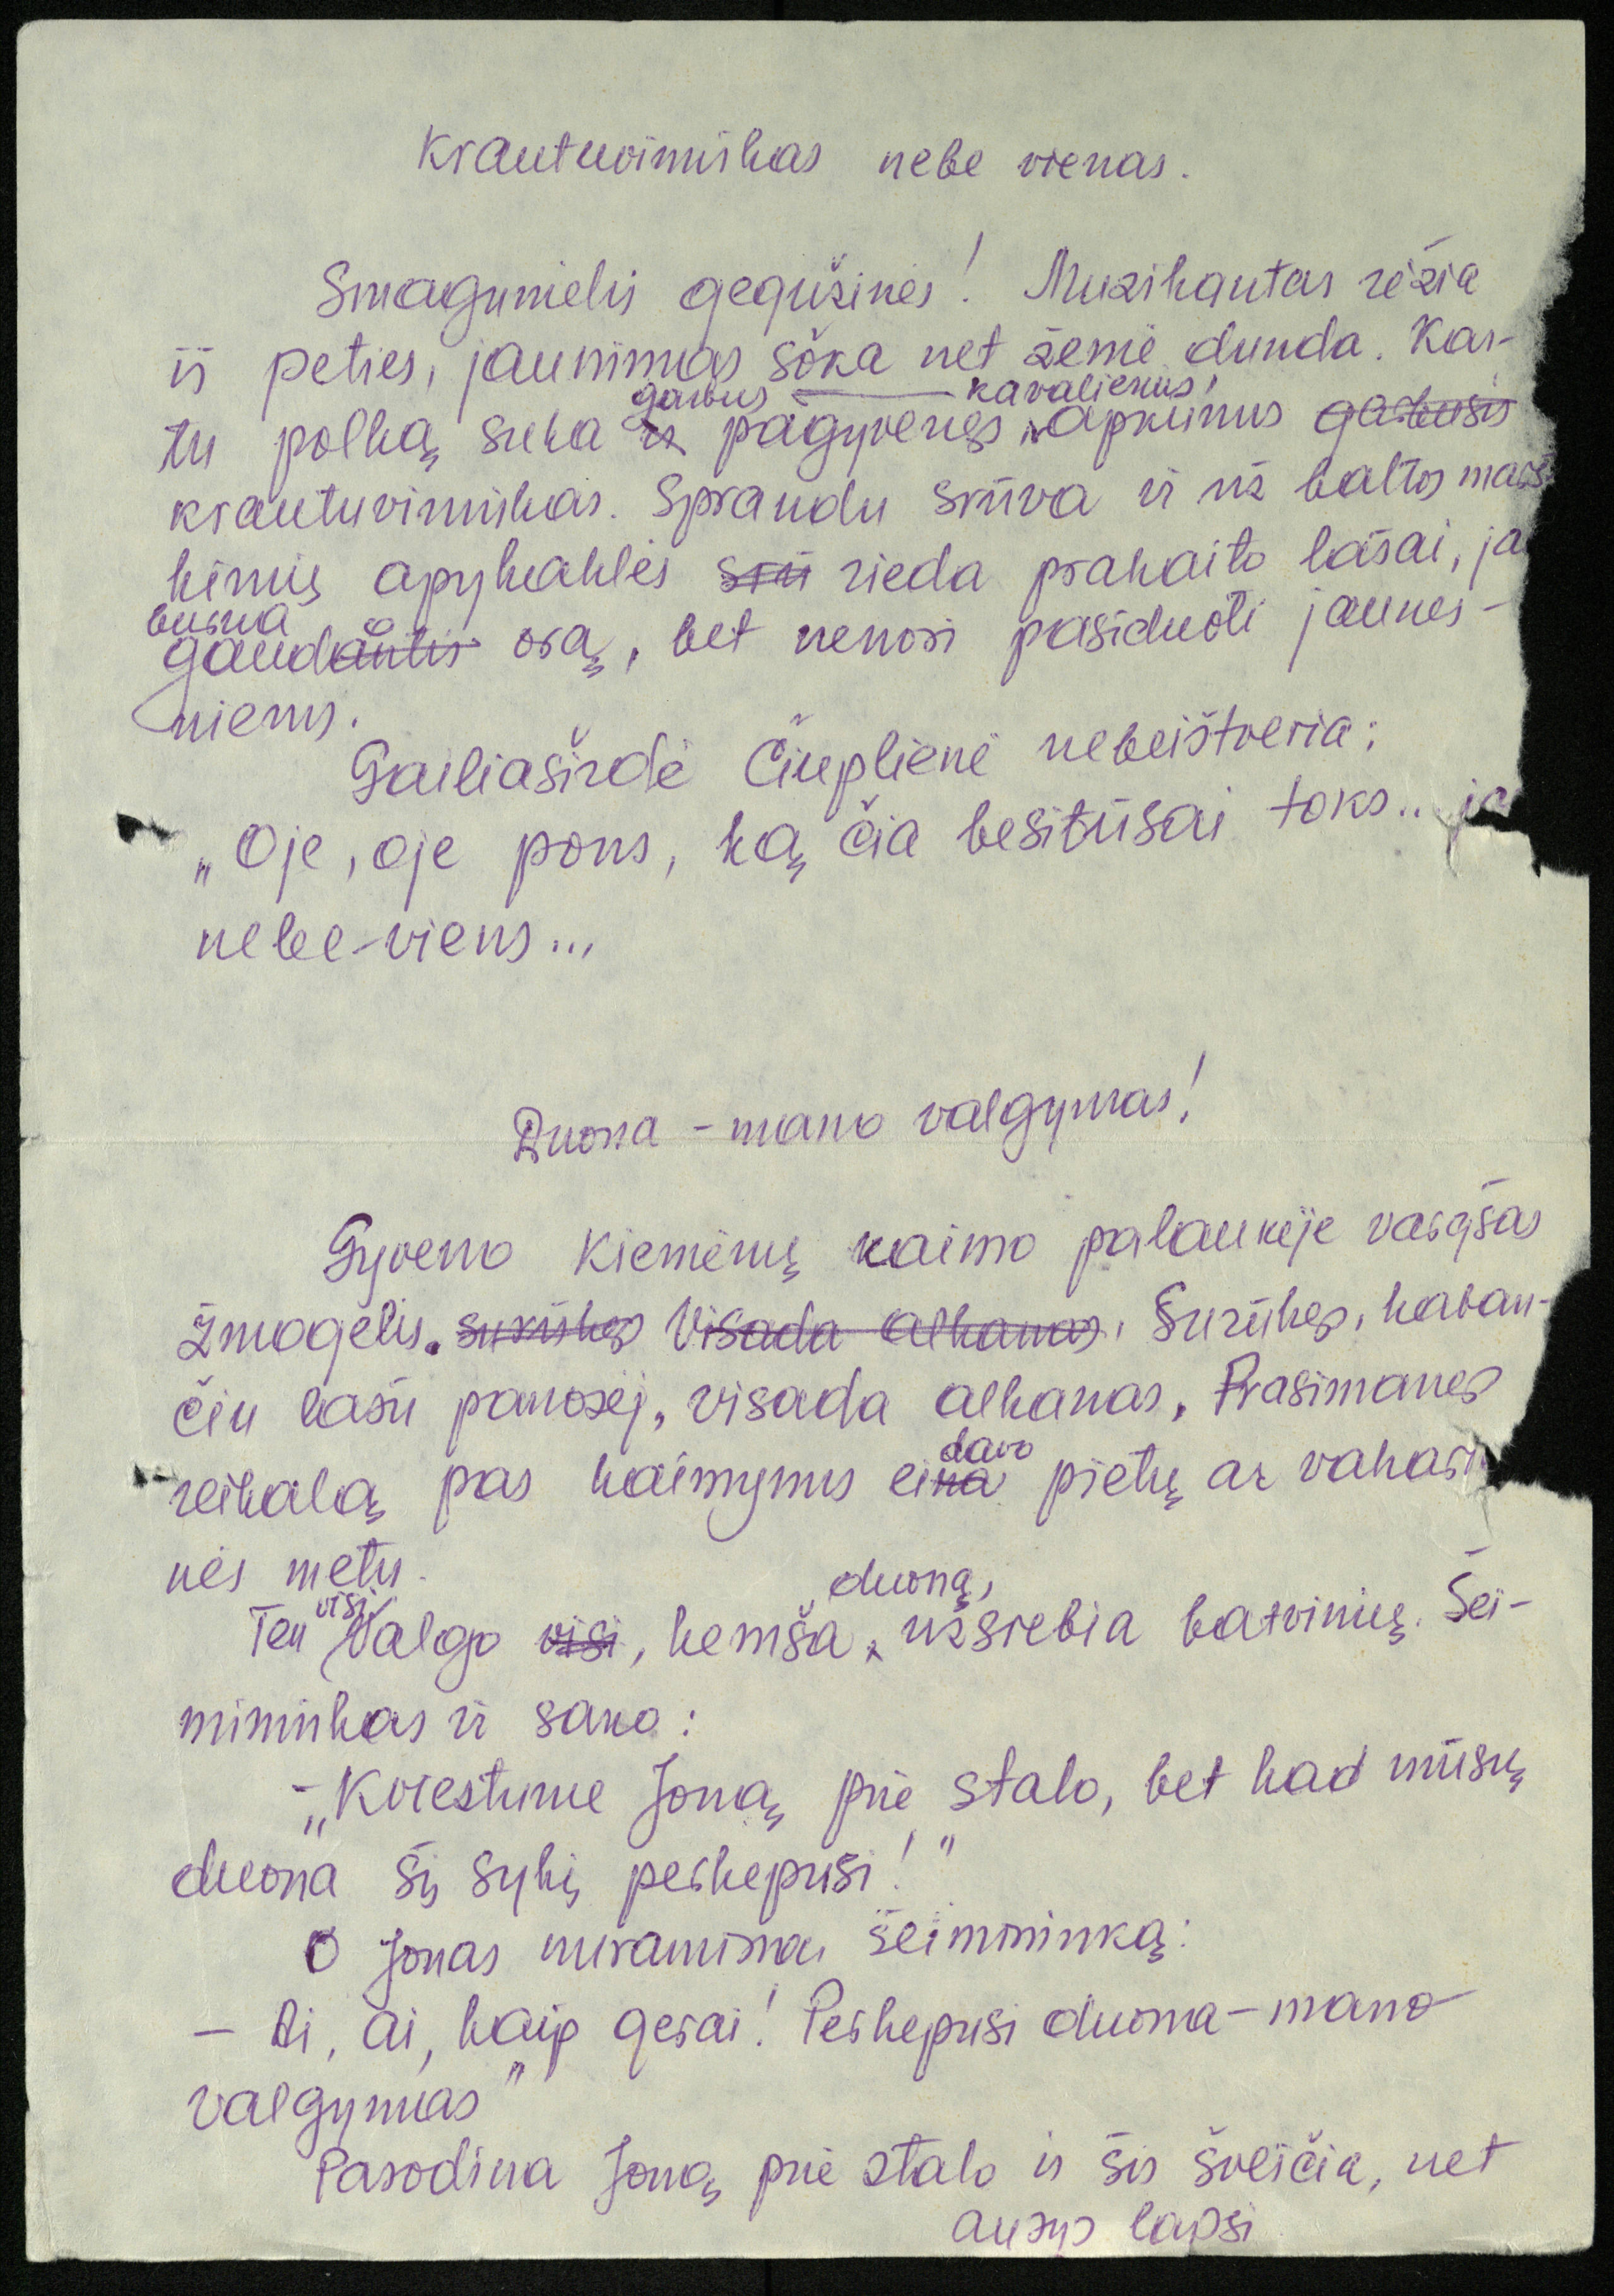 Krautuvininkas nebe vienas.
Smagumėlis gegužinės! Muzikantas rėžia
iš peties, jaunimas šoka net žemė dunda. Kar-
garbus kavalierius,
tu polką suka ir pagyvenęs, apkūnus garbusis
krautuvininkas. Sprandu srūva ir už baltos marš
kinių apykaklės srū rieda prakaito lašai, ja
burna o
gaudantis orą, bet nenori pasiduoti jaunes-
niems.
Gailiaširdė Čiuplienė nebeištveria:
„Oje, oje pons, ką čia besitūsai toks.. ja
nebe-viens...
Duona – mano valgymas!
Gyveno Kiemėnų kaimo palaukėje vargšas
žmogelis. surūkęs Visada alkanas. Surūkęs, kaban-
čiu lašu panosėj, visada alkanas. Prasimanęs
davo
reikalą pas kaimynus eina pietų ar vakari
nės metu.
visi duoną,
Ten Valgo visi, kemša, užsrebia batvinių. Šei-
mininkas ir sako:
– „Kviestume Joną prie stalo, bet kad mūsų
duona šį sykį perkepusi!"
O Jonas nuramina šeimininką:
– Ai, ai, kaip gerai! Perkepusi duona – mano
valgymas"
Pasodina Joną prie stalo ir šis šveičia, net
ausys lapsi